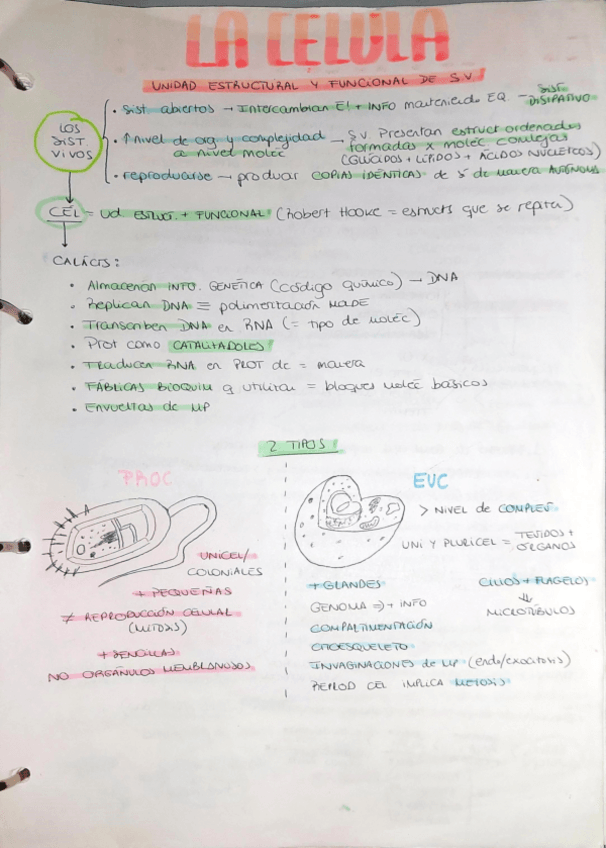 LA CELULA
UNIDAD ESTRUCTURAL Y FUNCIONAL DE S.V.
LOS
SIST
VIVOS
· Sist abiertos → Intercambian E! + INFO manteniendo EQ - SIST
DISIPATIVO
· ↑ Nivel de org y complejidad → S.V. Presentan estruct ordenadas
a nivel molec formadas x molec complejas
(GLÚCIDOS + LÍPIDOS + ÁCIDOS NUCLEICOS)
· reproducirse → producir COPIAS IDÉNTICAS de sí de manera AUTÓNOMA
CÉL = Ud ESTRUCT. + FUNCIONAL (Robert HOOKE = estructs que se repiten)
CARÁCTS:
· Almacenan INFO. GENÉTICA (código químico) → DNA
· Replican DNA ≡ polimerización MOLDE
· Transcriben DNA en RNA (= tipo de moléc)
· Prot como CATALIZADORES
· Traducen RNA en PROT de = manera
· FÁBRICAS BIOQUIM q utilizan = bloques moléc básicos
· Envueltas de MP
2 TIPOS
PROC
UNICEL/
COLONIALES
+ PEQUEÑAS
≠ REPRODUCCIÓN CELULAR
(MITOSIS)
+ SENCILLAS
NO ORGÁNULOS MEMBRANOSOS
EUC
> NIVEL de COMPLEJ
UNI Y PLURICEL = TEJIDOS +
ÓRGANOS
+ GRANDES
GENOMA => + INFO
COMPARTIMENTACIÓN
CITOESQUELETO
INVAGINACIONES de MP (endo/exocitosis)
REPROD CEL IMPLICA MEIOSIS
CILIOS + FLAGELOS
⇓
MICROTÚBULOS